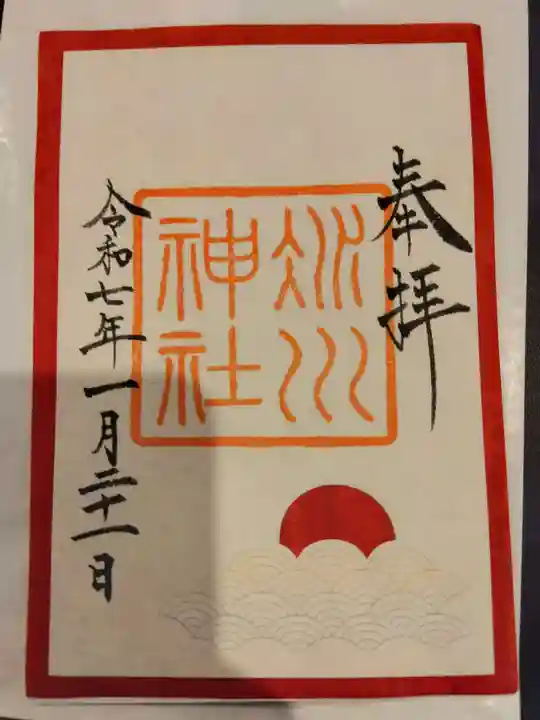 奉拝
氷川
神社
令和七年一月二十一日